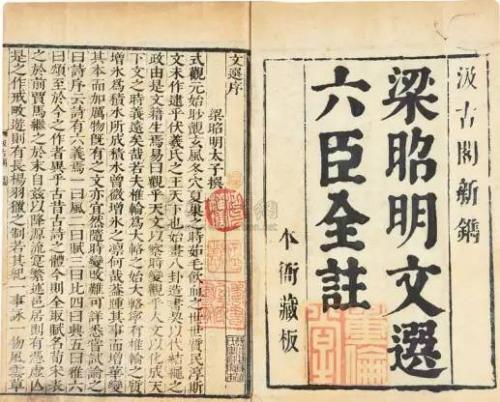 汲古閣新鐫
梁昭明文選
六臣全註
本衙藏板
文選序
梁昭明太子撰
式觀元始眇覿玄風冬穴夏巢之時茹毛飲血之世世質民淳斯
文未作逮乎伏羲氏之王天下也始畫八卦造書契以代結繩之
政由是文籍生焉易曰觀乎天文以察時變觀乎人文以化成天
下文之時義遠矣哉若夫椎輪為大輅之始大輅寧有椎輪之質
增氷為積水所成積水曾微增氷之凛何哉蓋踵其事而增華變
其本而加厲物既有之文亦宜然隨時變改難可詳悉嘗試論之
曰詩序云詩有六義焉一曰風二曰賦三曰比四曰興五曰雅六
曰頌至於今之作者異乎古昔古詩之體今則全取賦名荀宋表
之於前賈馬繼之於末自茲以降源流寔繁述邑居則有憑虛亡
是之作戒畋遊則有長楊羽獵之制若其紀一事詠一物風雲草